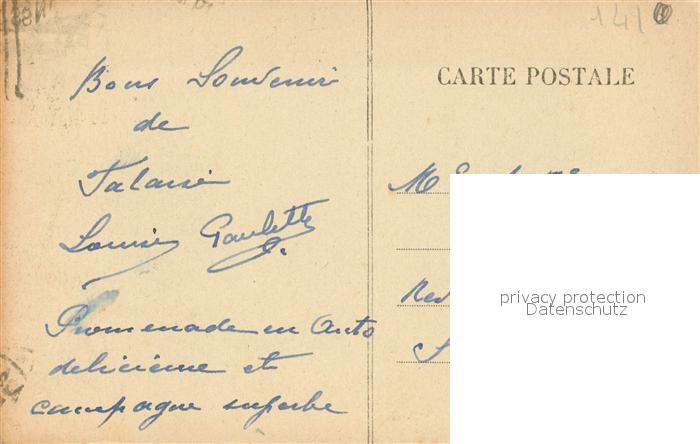 Bons Souvenir
de
Talaisi
Louise Paulette
Promenade en Auto
delicieuse et
campagne superbe
141
CARTE POSTALE
M
privacy protection
Datenschutz